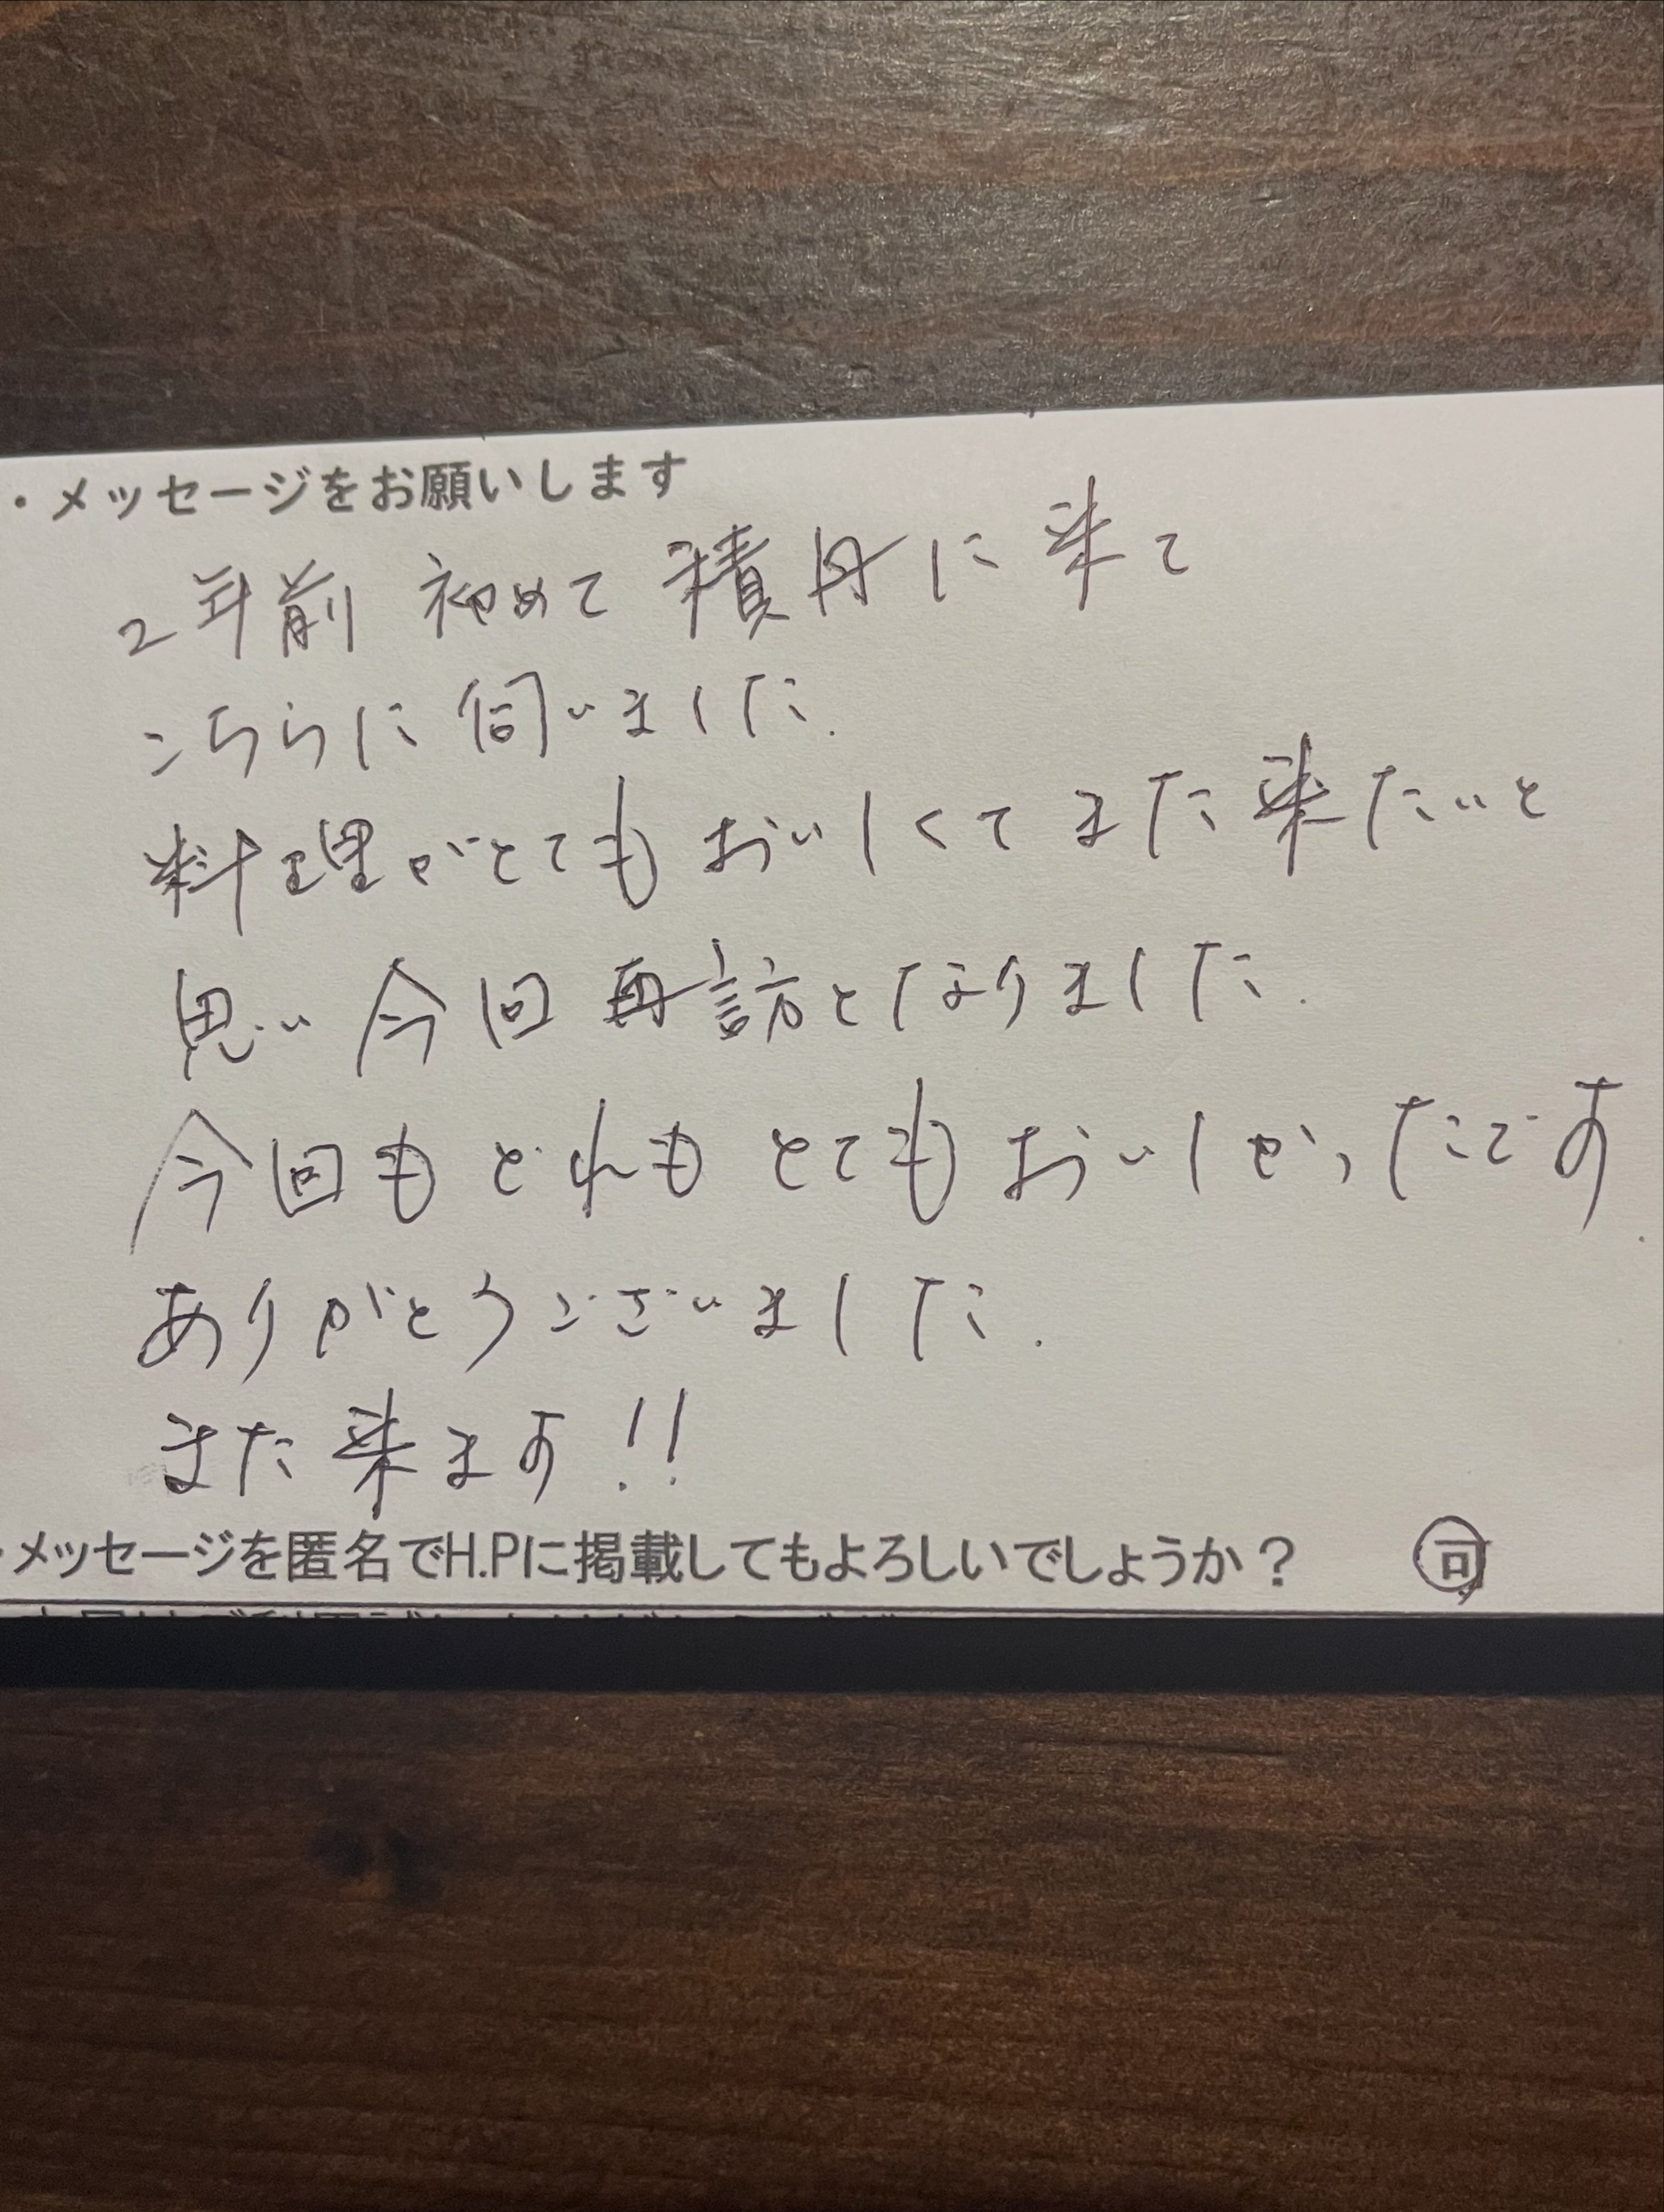 ・メッセージをお願いします
2年前 初めて 積丹に来て
こちらに伺いました.
料理がとてもおいしくてまた来たいと
思い 今回 再訪となりました.
今回もどれもとてもおいしかったです.
ありがとうございました.
また来ます!!
・メッセージを匿名でH.Pに掲載してもよろしいでしょうか? 可